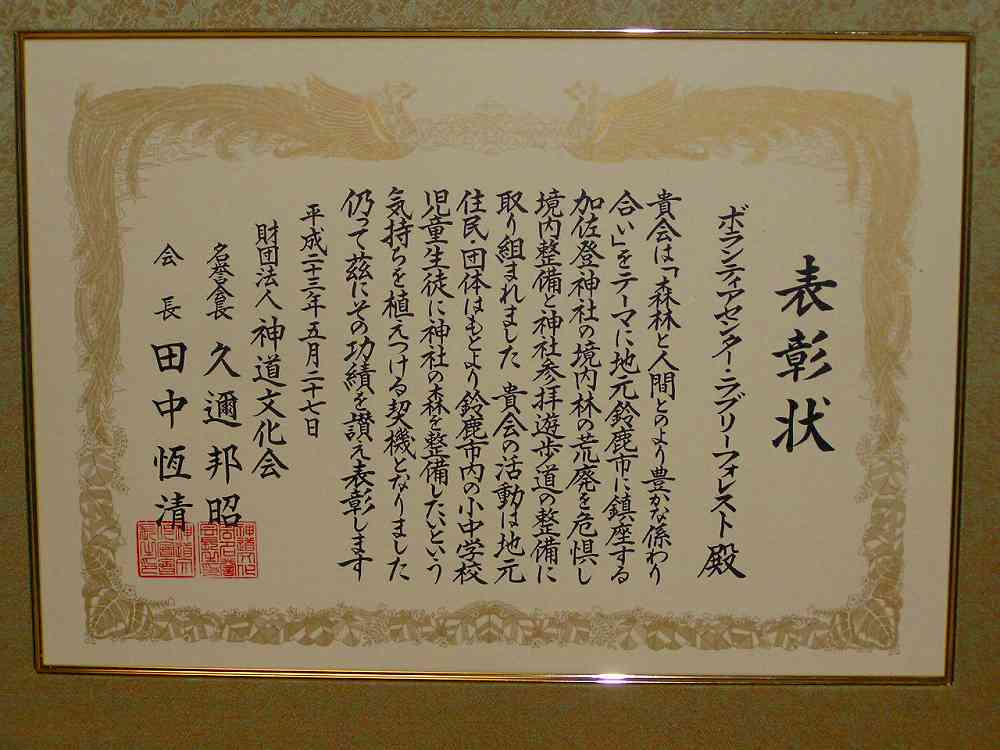 表彰状
ボランティアセンター・ラブリーフォレスト 殿
貴会は「森林と人間とのより豊かな係わり
合い」をテーマに地元鈴鹿市に鎮座する
加佐登神社の境内林の荒廃を危惧し
境内整備と神社参拝遊歩道の整備に
取り組まれました 貴会の活動は地元
住民・団体はもとより鈴鹿市内の小中学校
児童生徒に神社の森を整備したいという
気持ちを植えつける契機となりました
仍って茲にその功績を讃え表彰します
平成二十三年五月二十七日
財団法人 神道文化会
名誉会長 久邇邦昭
会長 田中恆清